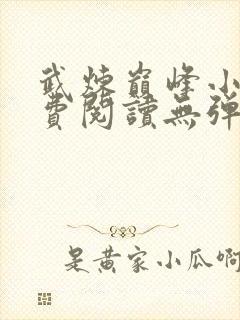 武炼巅峰小
费阅读无弹
是黄家小瓜啊